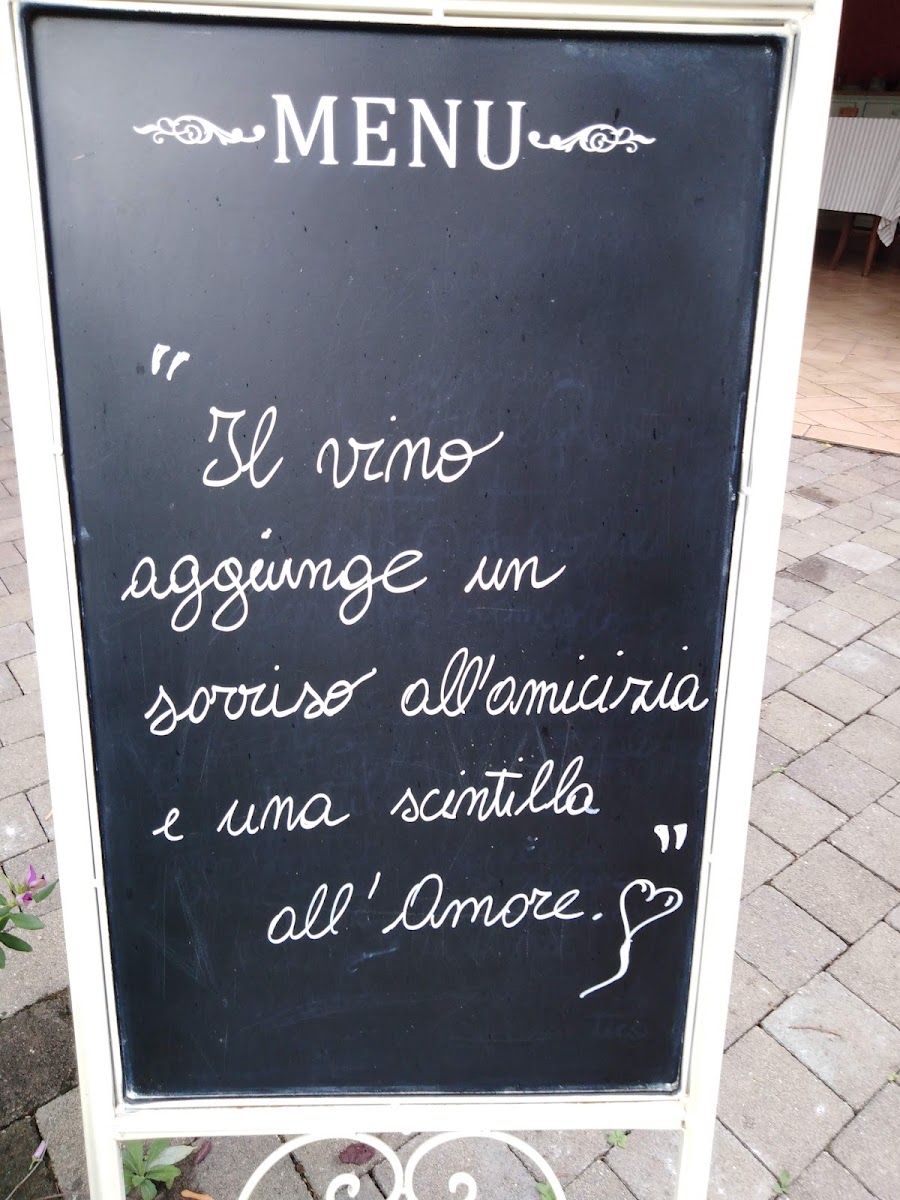 MENU
"
Il vino
aggiunge un
sorriso all'amicizia
e una scintilla
all'Amore."